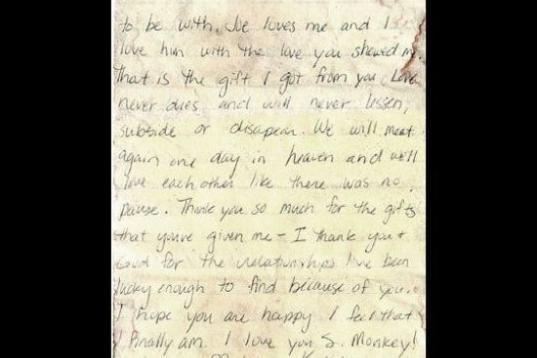 to be with. Joe loves me and I
love him with the love you showed me
That is the gift I got from you. Love
never dies and will never lessen,
subside or disapear. We will meet
again one day in heaven and we'll
love each other like there was no
pause. Thank you so much for the gifts
that youve given me - I thank you +
for the relationships I've been
lucky enough to find because of you.
I hope you are happy I feel that
I finally am. I love you S. Monkey!